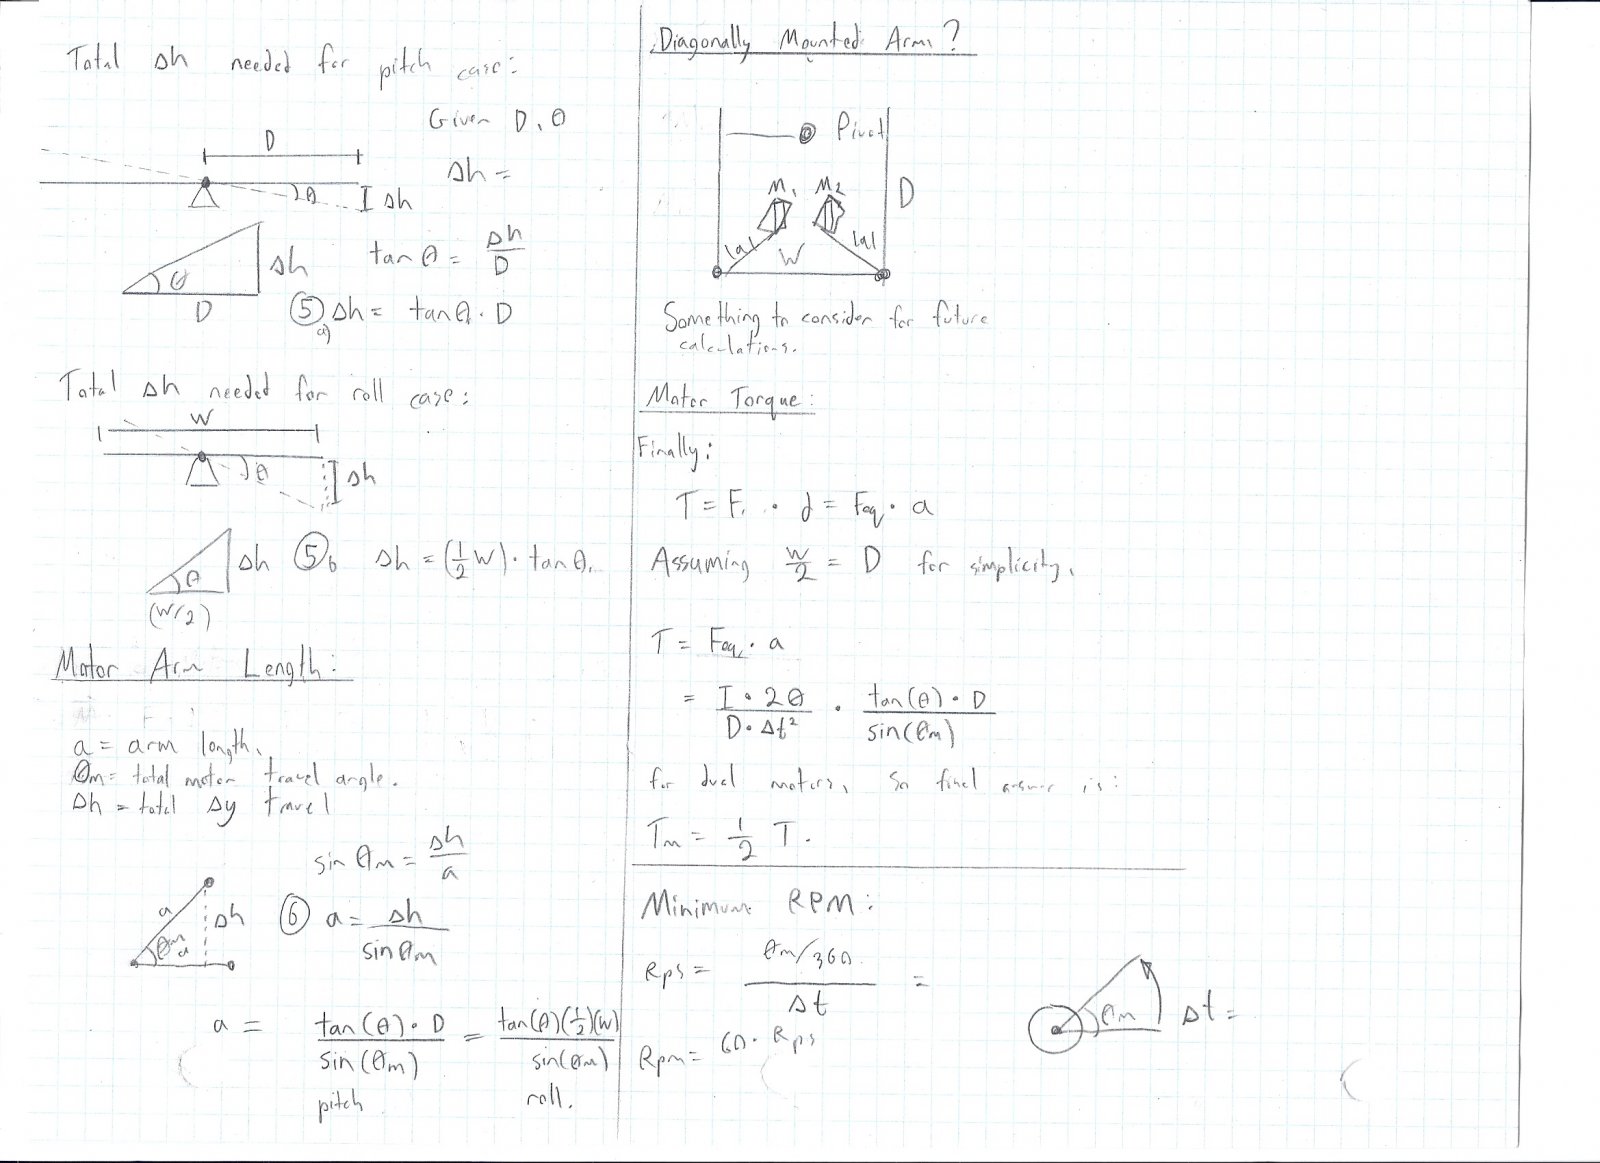 Total Δh needed for pitch case:
Given D, θ
D
Δh =
θ
Δh
Δh
θ
D
tan θ = Δh / D
5 a) Δh = tanθ · D
Total Δh needed for roll case:
W
θ
Δh
Δh
θ
(W/2)
5 b Δh = (1/2 W) · tan θ.
Motor Arm Length:
a = arm length.
θm = total motor travel angle.
Δh = total Δy travel
sin θm = Δh / a
a
Δh
θm
6 a = Δh / sin θm
a = tan(θ) · D / sin(θm) = tan(θ)(1/2)(W) / sin(θm)
pitch roll.
Diagonally Mounted Arms?
Pivot
M1 M2
D
|a| |a|
W
Something to consider for future
calculations.
Motor Torque:
Finally:
T = F, · d = Feq · a
Assuming W/2 = D for simplicity,
T = Feq · a
= I · 2θ / D · Δt² · tan(θ) · D / sin(θm)
for dual motors, so final answer is:
Tm = 1/2 T.
Minimum RPM:
Rps = θm/360 / Δt =
Rpm = 60 · Rps
θm
Δt =